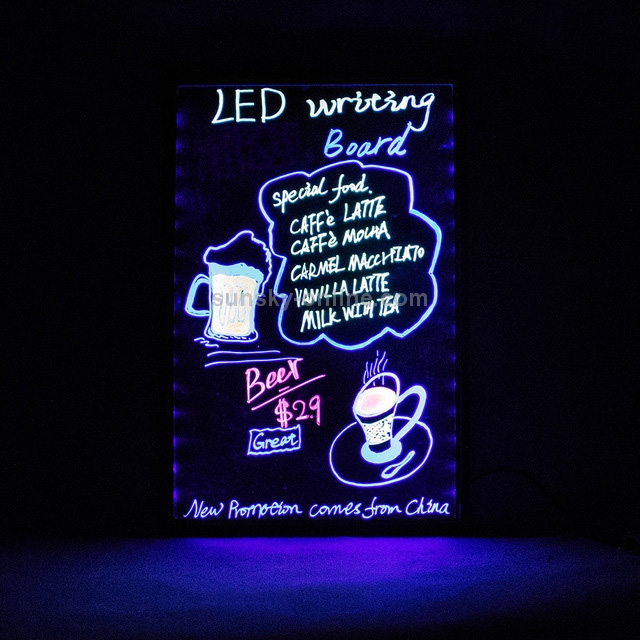 LED writing
Board
special food.
CAFFè LATTE
CAFFè MOCHA
CARMEL MACCHIATO
VANILLA LATTE
MILK WITH TEA
sunsky-online.com
Beer
$29
Great
New Promotion comes from China